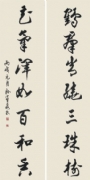 鶴羣常繞三珠樹
花氣渾如百和香